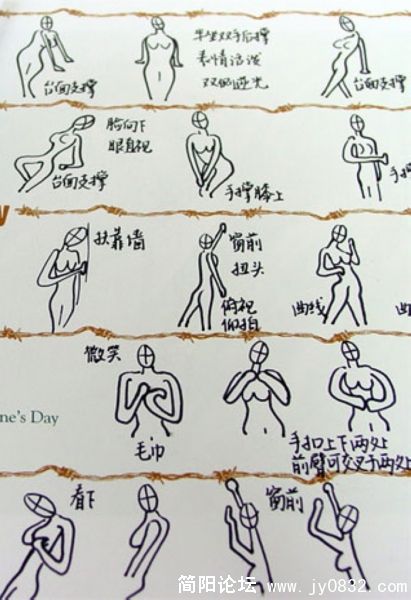 半坐双手后撑
表情淡淡
双眼逆光
台面支撑
台面支撑
脸向下
眼直视
台面支撑
手撑膝上
手撑
扶靠墙
窗前
扭头
俯视
仰拍
曲线
曲
微笑
ne's Day
毛巾
手扣上下两处
前臂可交叉于两处
看下
窗前
简阳论坛 www.jy0832.com